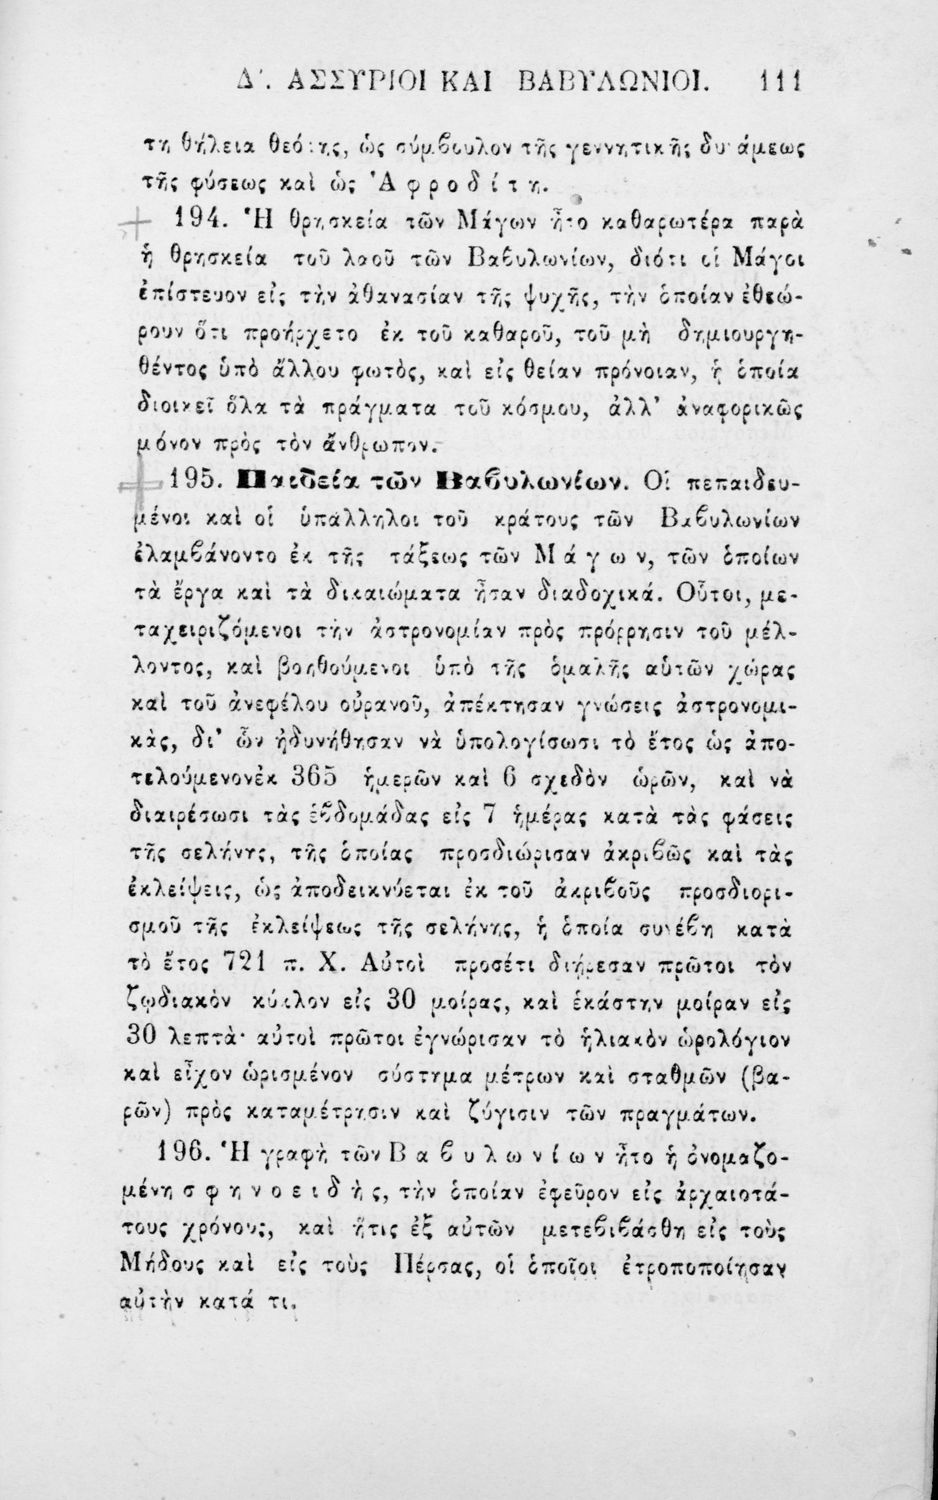 Δ΄. ΑΣΣΥΡΙΟΙ ΚΑΙ ΒΑΒΥΛΩΝΙΟΙ. 111
τη θήλεια θεότης, ὡς σύμβουλον τῆς γεννητικῆς δυνάμεως
τῆς φύσεως καὶ ὡς Ἀφροδίτη.
194. Ἡ θρησκεία τῶν Μάγων ἦτο καθαρωτέρα παρὰ
ἡ θρησκεία τοῦ λαοῦ τῶν Βαβυλωνίων, διότι οἱ Μάγοι
ἐπίστευον εἰς τὴν ἀθανασίαν τῆς ψυχῆς, τὴν ὁποίαν ἐθεώ-
ρουν ὅτι προήρχετο ἐκ τοῦ καθαροῦ, τοῦ μὴ δημιουργη-
θέντος ὑπὸ ἄλλου φωτὸς, καὶ εἰς θείαν πρόνοιαν, ἡ ὁποία
διοικεῖ ὅλα τὰ πράγματα τοῦ κόσμου, ἀλλ' ἀναφορικῶς
μόνον πρὸς τὸν ἄνθρωπον.
195. Παιδεία τῶν Βαβυλωνίων. Οἱ πεπαιδευ-
μένοι καὶ οἱ ὑπάλληλοι τοῦ κράτους τῶν Βαβυλωνίων
ἐλαμβάνοντο ἐκ τῆς τάξεως τῶν Μάγων, τῶν ὁποίων
τὰ ἔργα καὶ τὰ δικαιώματα ἦσαν διαδοχικά. Οὗτοι, με-
ταχειριζόμενοι τὴν ἀστρονομίαν πρὸς πρόρρησιν τοῦ μέλ-
λοντος, καὶ βοηθούμενοι ὑπὸ τῆς ὁμαλῆς αὑτῶν χώρας
καὶ τοῦ ἀνεφέλου οὐρανοῦ, ἀπέκτησαν γνώσεις ἀστρονομι-
κὰς, δι' ὧν ἠδυνήθησαν νὰ ὑπολογίσωσι τὸ ἔτος ὡς ἀπο-
τελούμενονἐκ 365 ἡμερῶν καὶ 6 σχεδὸν ὡρῶν, καὶ νὰ
διαιρέσωσι τὰς ἑβδομάδας εἰς 7 ἡμέρας κατὰ τὰς φάσεις
τῆς σελήνης, τῆς ὁποίας προσδιώρισαν ἀκριβῶς καὶ τὰς
ἐκλείψεις, ὡς ἀποδεικνύεται ἐκ τοῦ ἀκριβοῦς προσδιορι-
σμοῦ τῆς ἐκλείψεως τῆς σελήνης, ἡ ὁποία συνέβη κατὰ
τὸ ἔτος 721 π. Χ. Αὐτοὶ προσέτι διῄρεσαν πρῶτοι τὸν
ζῳδιακὸν κύκλον εἰς 30 μοίρας, καὶ ἑκάστην μοίραν εἰς
30 λεπτά· αὐτοὶ πρῶτοι ἐγνώρισαν τὸ ἡλιακὸν ὡρολόγιον
καὶ εἶχον ὡρισμένον σύστημα μέτρων καὶ σταθμῶν (βα-
ρῶν) πρὸς καταμέτρησιν καὶ ζύγισιν τῶν πραγμάτων.
196. Ἡ γραφὴ τῶν Βαβυλωνίων ἦτο ἡ ὀνομαζο-
μένη σφηνοειδὴς, τὴν ὁποίαν ἐφεῦρον εἰς ἀρχαιοτά-
τους χρόνους, καὶ ἥτις ἐξ αὐτῶν μετεβιβάσθη εἰς τοὺς
Μήδους καὶ εἰς τοὺς Πέρσας, οἱ ὁποῖοι ἐτροποποίησαν
αὐτὴν κατά τι.